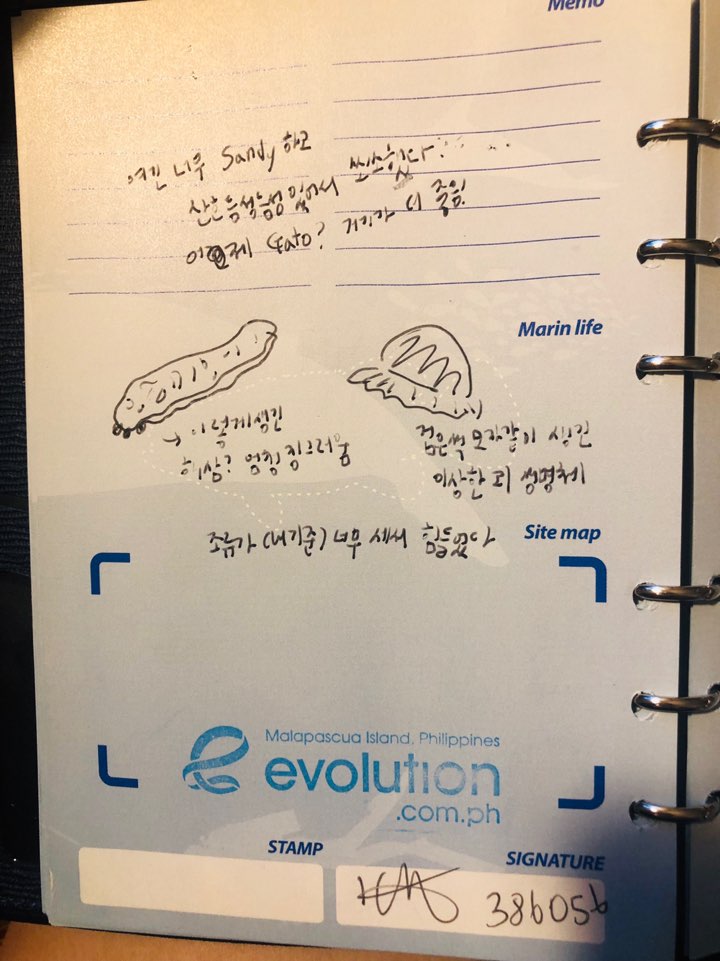 Memo
여긴 너무 Sandy 하고
산호 듬성듬성 있어서 쏘쏘했다
어제 Gato? 거기가 더 좋음
Marin life
이렇게생긴
해삼? 엄청 징그러움
검은색 모자같이 생긴
이상한 괴 생명체
Site map
조류가 (내기준) 너무 세서 힘들었
Malapascua Island, Philippines
evolution
.com.ph
STAMP
SIGNATURE
386056